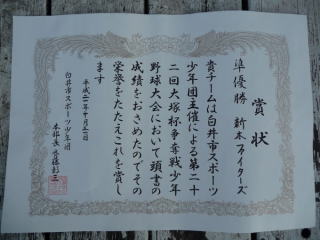 賞状
準優勝 新木ファイターズ
貴チームは白井市スポーツ
少年団主催による第二十
二回大塚杯争奪戦少年
野球大会において頭書の
成績をおさめたのでその
栄誉をたたえこれを賞し
ます
平成二一年十月三一日
白井市スポーツ少年団
本部長